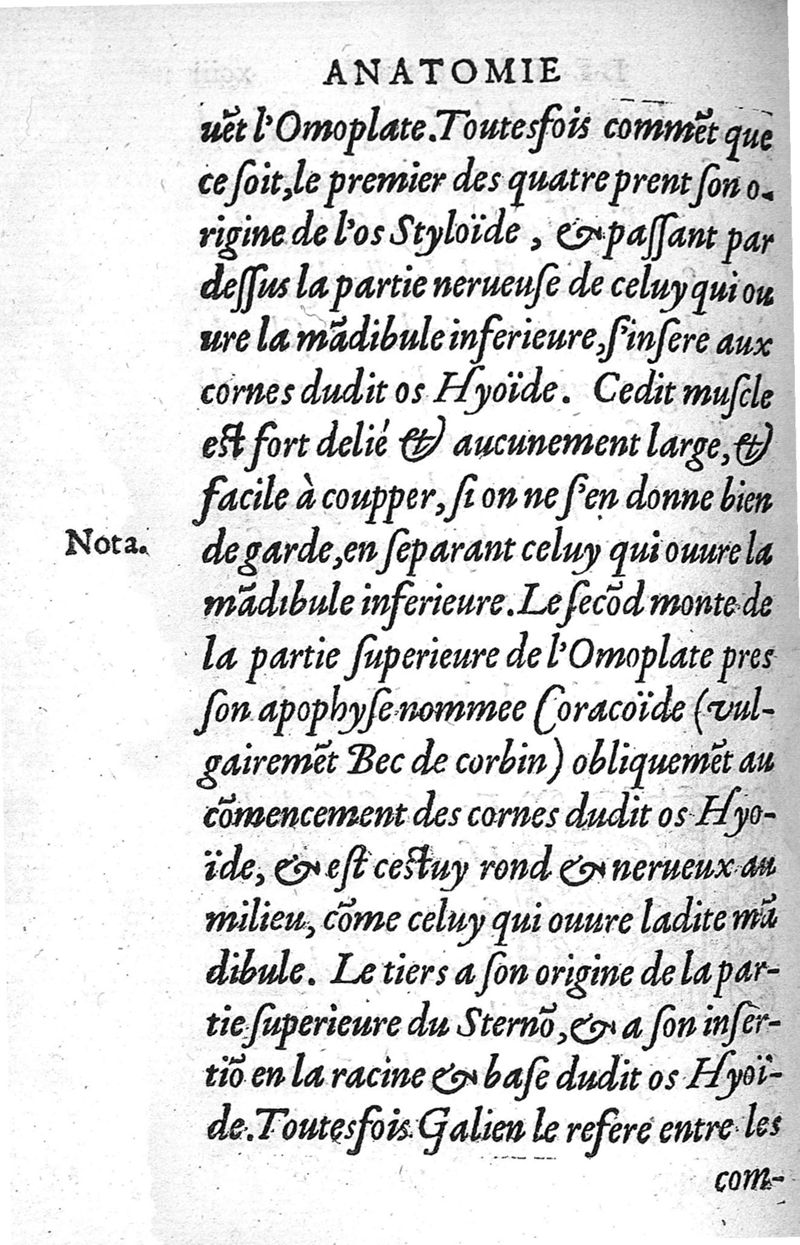 ANATOMIE
uẽt l'Omoplate. Toutesfois commẽt que
ce ſoit, le premier des quatre prent ſon o-
rigine de l'os Styloïde, & paſſant par
deſſus la partie nerueuſe de celuy qui ou
ure la mãdibule inferieure, ſ'inſere aux
cornes dudit os Hyoïde. Cedit muſcle
eſt fort delié & aucunement large, &
facile à coupper, ſi on ne ſ'en donne bien
Nota.
de garde, en ſeparant celuy qui ouure la
mãdibule inferieure. Le ſecõd monte de
la partie ſuperieure de l'Omoplate pres
ſon apophyſe nommee Coracoïde (vul-
gairemẽt Bec de corbin) obliquemẽt au
cõmencement des cornes dudit os Hyo-
ïde, & eſt ceſtuy rond & nerueux au
milieu, cõme celuy qui ouure ladite mã
dibule. Le tiers a ſon origine de la par-
tie ſuperieure du Sternõ, & a ſon inſer-
tiõ en la racine & baſe dudit os Hyoï-
de. Toutesfois Galien le refere entre les
com-